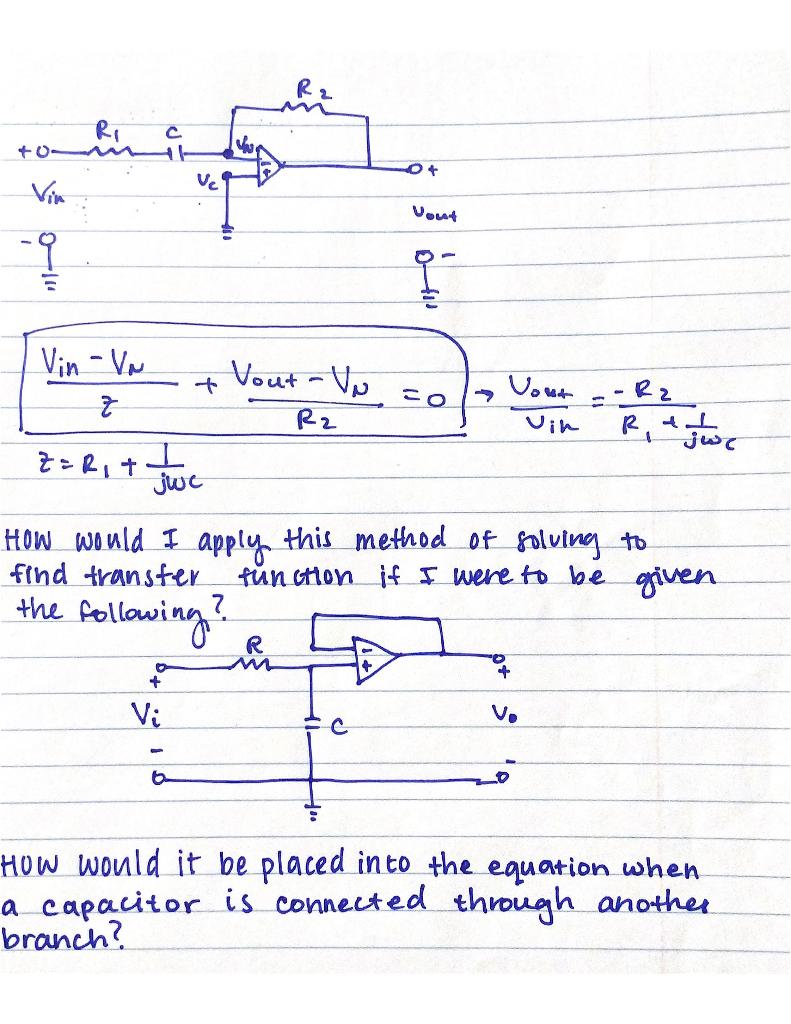 R2
R1 C
+ VN -
Vc +
+
Vin
Vout
-
-
Vin - VN / z + Vout - VN / R2 = 0 → Vout / Vin = -R2 / R1 + 1/jwc
z = R1 + 1/jwc
HOW would I apply this method of solving to
find transfer function if I were to be given
the following?
R
-
+
+ +
Vi C Vo
- -
HOW would it be placed into the equation when
a capacitor is connected through another
branch?